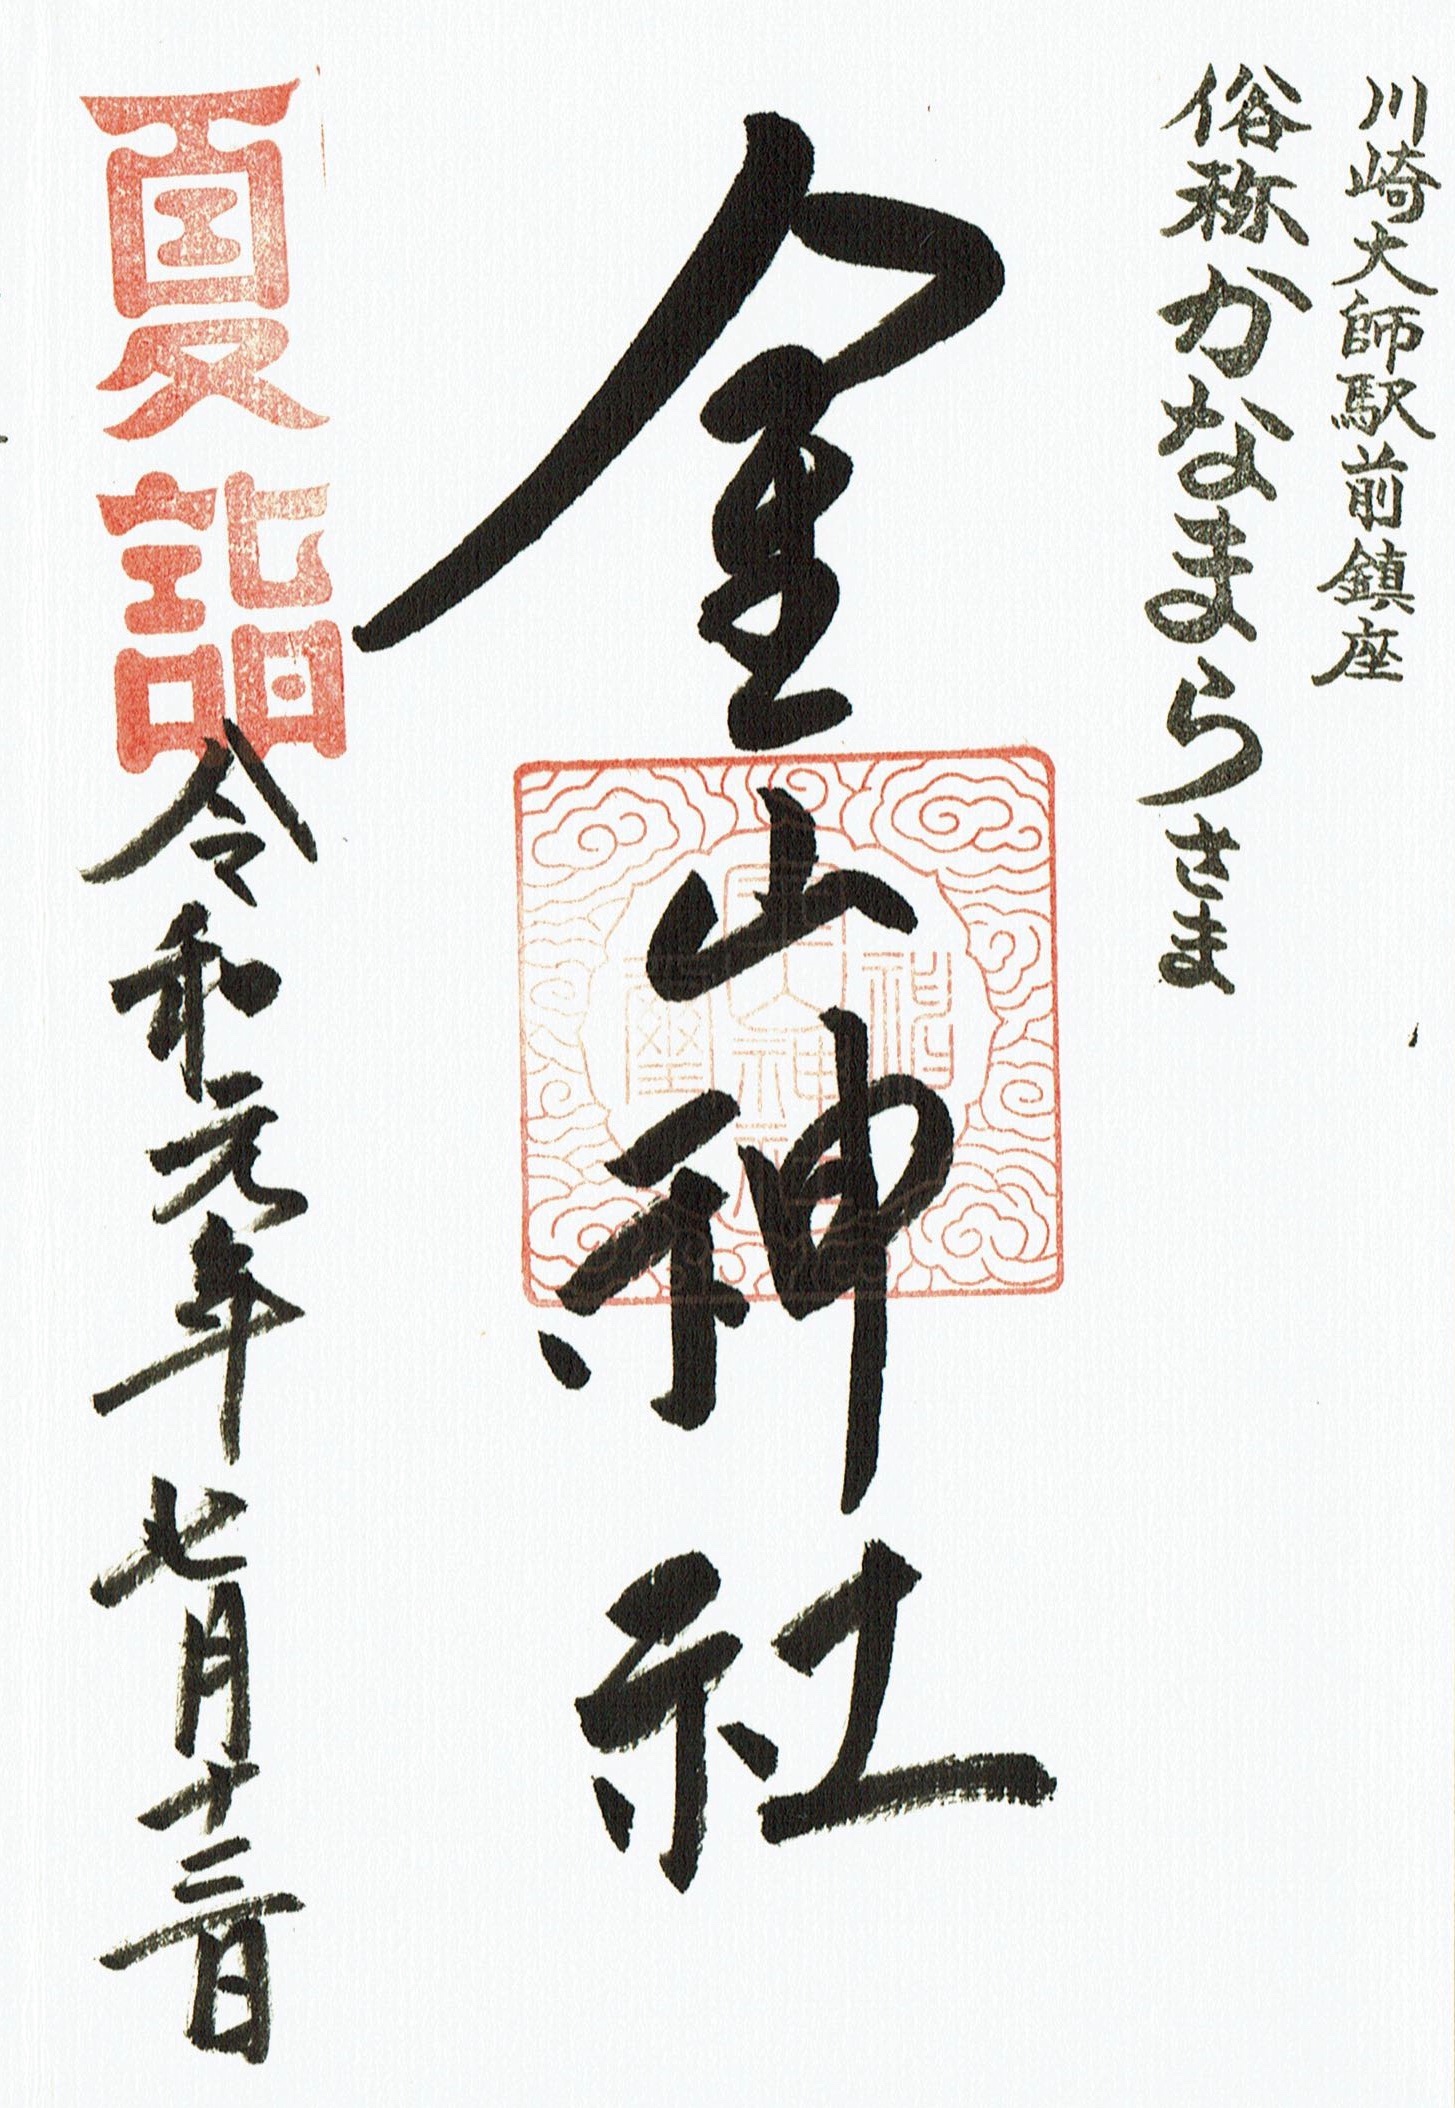 川崎大師駅前鎮座
俗称かなまらさま
金山神社
夏詣
令和元年七月十三日